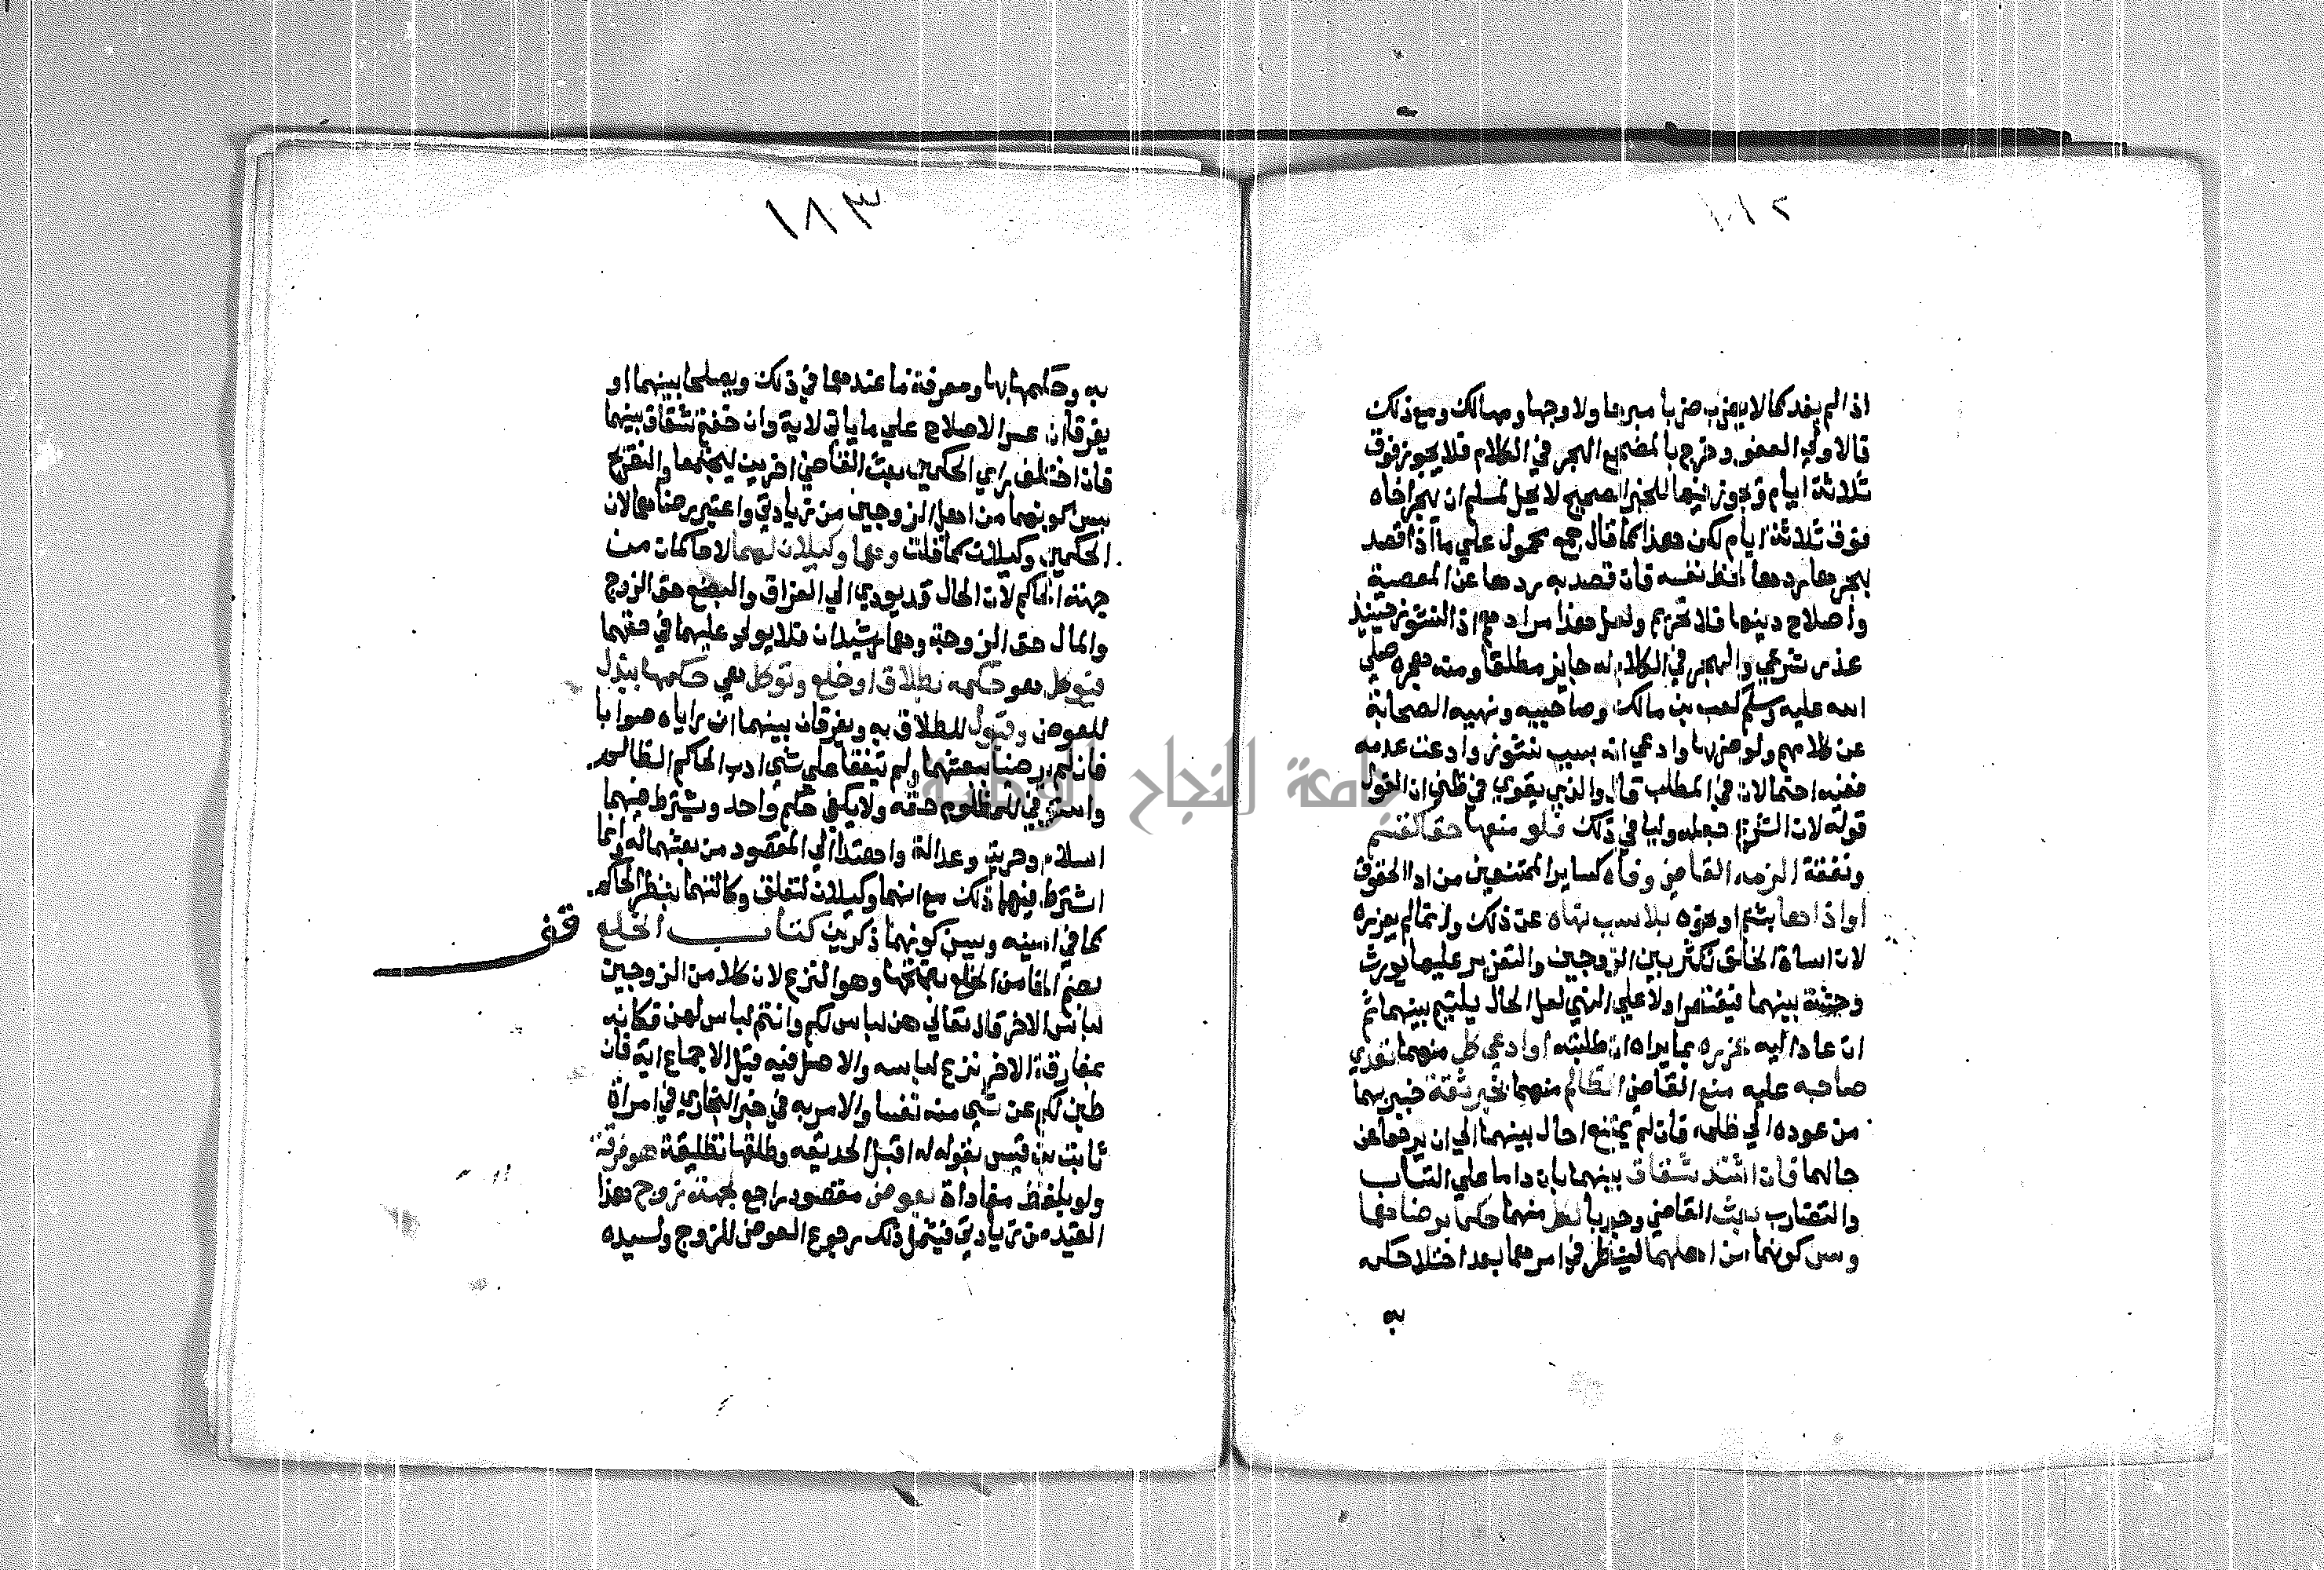 اذا لم يفد كما لا يضرب ضربا مبرحا ولا وجها ومهالك ومع ذلك
فالاولي العفو وخرج بالمضجع الهجر في الكلام فلا يجوز فوق
ثلاثة ايام ويجوز فيها للخبر الصحيح لا يحل لمسلم ان يهجر اخاه
فوق ثلاثة ايام لكن هذا كما قال جمع محمول علي ما اذا قصد
بهجرها ردها لحظ نفسه فان قصد به ردها عن المعصية
واصلاح دينها فلا تحريم ولعل هذا مرادهم اذ النشوز حينيذ
عذر شرعي والهجر في الكلام له جايز مطلقا ومنه هجره صلي
الله عليه وسلم كعب بن مالك وصاحبيه ونهيه الصحابة
عن كلامهم ولو ضربها وادعي انه بسبب نشوز وادعت عدمه
ففيه احتمالان في المطلب قال والذي يقوي في ظني ان القول
قوله لان الشرع جعله وليا في ذلك فلو منعها حقا كقسم
ونفقة الزمه القاضي وفاه كساير الممتنعين من ادا الحقوق
او اذاها بشتم او نحوه بلا سبب نهاه عن ذلك وانما لم يعزره
لان اساة الخلق تكثر بين الزوجين والتعزير عليها يورث
وحشة بينهما فيقتصر اولا علي النهي لعل الحال يلتيم بينهما ثم
ان عاد اليه عزره بما يراه ان طلبته او ادعي كل منهما تعدي
صاحبه عليه منع القاضي الظالم منهما بخبر ثقة خبير بهما
من عوده الي ظلمه فان لم يمتنع احال بينهما الي ان يرجعا عن
حالهما فان اشتد شقاق بينهما بان داما علي التساب
والتضارب بعث القاضي وجوبا لكل منهما حكما برضاهما
وسن كونهما من اهلهما لينظر في امرهما بعد اختلا حكمه
به
١٨٣
به وحكمها بها ومعرفة ما عندهما في ذلك ويصلحا بينهما او
يفرقا ان عسر الاصلاح علي ما ياتي لاية وان خفتم شقاق بينهما
فان اختلف راي الحكمين بعث القاضي اخرين ليجتمعا والتصريح
بسن كونهما من اهل الزوجين من زيادتي واعتبر رضاهما لان
الحكمين وكيلان كما قلت وهما وكيلان لهما لا حاكمان من
جهة الحاكم لان الحال قد يودي الي الفراق والبضع حق الزوج
والمال حق الزوجة وهما رشيدان فلا يولي عليهما في حقهما
فيوكل هو حكمه بطلاق او خلع وتوكل هي حكمها ببذل
للعوض وقبول للطلاق به ويفرقان بينهما ان راياه صوابا
فان لم يرضيا ببعثهما ولم يتفقا علي شي ادب الحاكم الظالم
واستوفي للمظلوم حقه ولا يكفي حكم واحد ويشترط فيهما
اسلام وحرية وعدالة واهتدا الي المقصود من بعثهما له وانما
اشترط فيهما ذلك مع انهما وكيلان لتعلق وكالتهما بنظر الحاكم
كما في امينه وسن كونهما ذكرين كتاب الخلع
قف
بضم الخا من الخلع بفتحها وهو النزع لان كلا من الزوجين
لباس الاخر قال تعالي هن لباس لكم وانتم لباس لهن فكانه
بمفارقة الاخر نزع لباسه والاصل فيه قبل الاجماع اية فان
طبن لكم عن شي منه نفسا والامر به في خبر البخاري في امراة
ثابت بن قيس بقوله له اقبل الحديقة وطلقها تطليقة هو فرقة
ولو بلفظ مفاداة بعوض مقصود راجع لجهة زوج هذا
القيد من زيادتي فيشمل ذلك رجوع العوض للزوج ولسيده